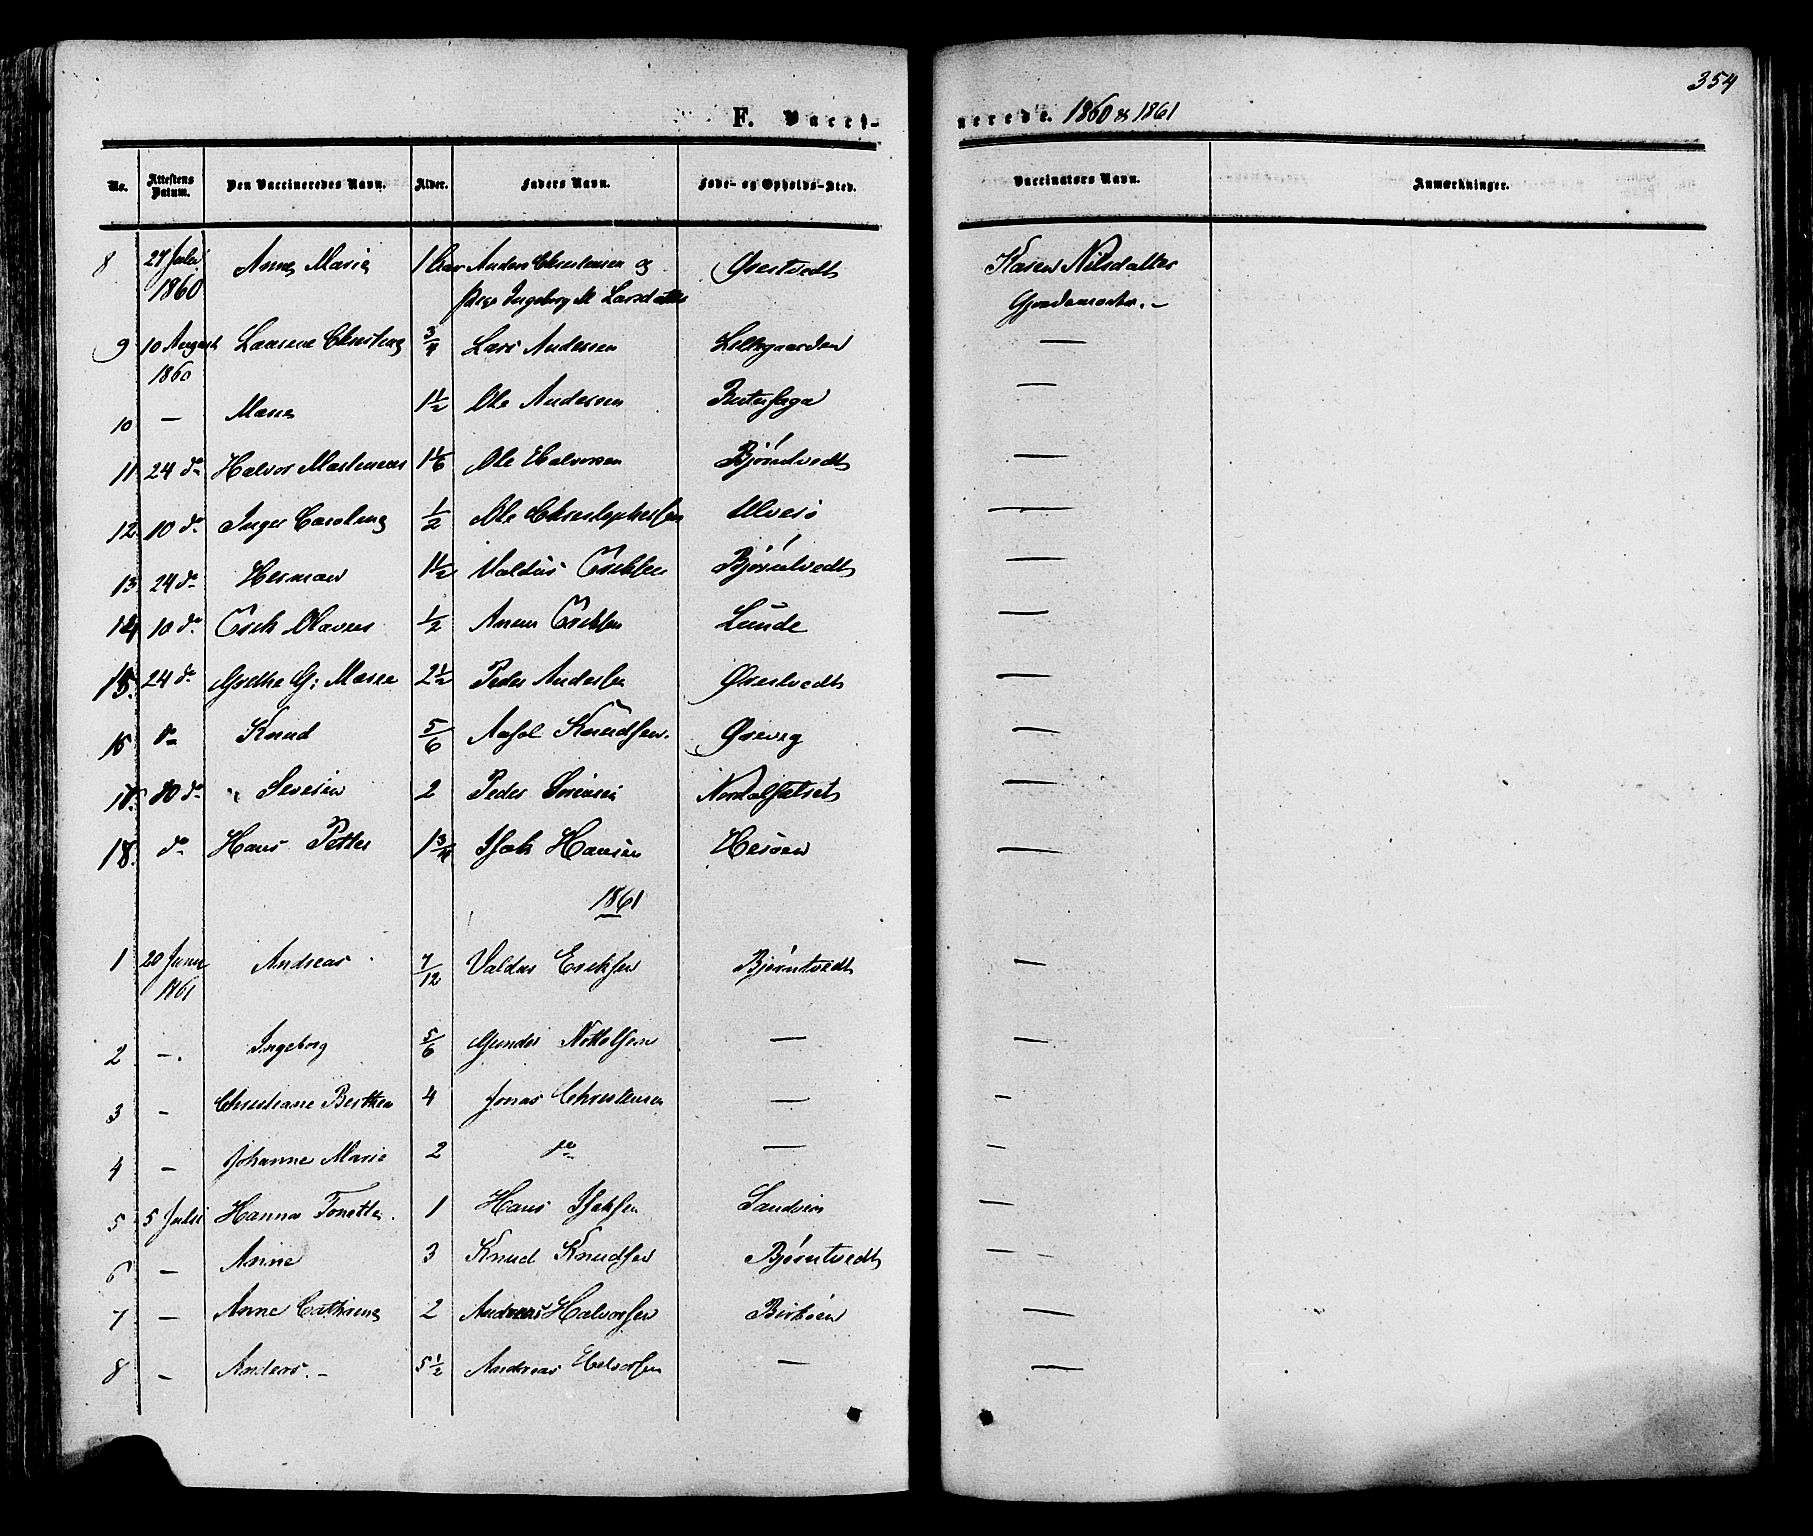 354
F. Vacci-
nerede. 1860 & 1861
No. Attestens Datum. Den Vaccineredes Navn. Alder. Faders Navn. Føde- og Opholds-Sted. Vaccinators Navn. Anmærkninger.
8 27 Juli 1860 Anne Marie 1 Aar Anders Christensen og Karen Nilsdatter
Pige Ingeborg M Larsdatter Gjordemoder. –
9 10 August 1860 Laurene Christine 3/4 Lars Andersen —
10 — Maren 1 1/2 Ole Andersen —
11 24 do Halvor Martinius 1 1/6 Ole Halvorsen Bjørntvedt —
12. 10 do Inger Caroline 1/2 Ole Christophersen —
13 24 do Herman 1 1/2 Valdus Eriksen Bjørntvedt —
14 10 do Erik Olavus 1/2 Eriksen Lunde —
15. 24 do Grethe G: Marie 2 1/2 Peder Andersen —
16 do Knud 5/6 Knudsen. —
30 do Severin 2 Peder Sørensen —
18. do Hans Petter 1 3/4 Isak Hansen Herøen —
1861
1 20 Juni 1861 Andreas 7/12 Valdus Eriksen Bjørntvedt —
2 –. Ingeborg 5/6 Gunder Nottolfsen — —
3 – Christiane Berthea 4 Jonas Christensen — –
4 – Johanne Marie 2 do — –
5 5 Juli Hanna Tonette. 1 Hans Isaksen Sandøen —
6 – Anne 3 Knud Knudsen Bjørntvedt — –
7 – Anne Cathrine 2 Andreas Halvorsen Birkøen —
8 – Anders. – 5 1/2 Andreas Halvorsen — —